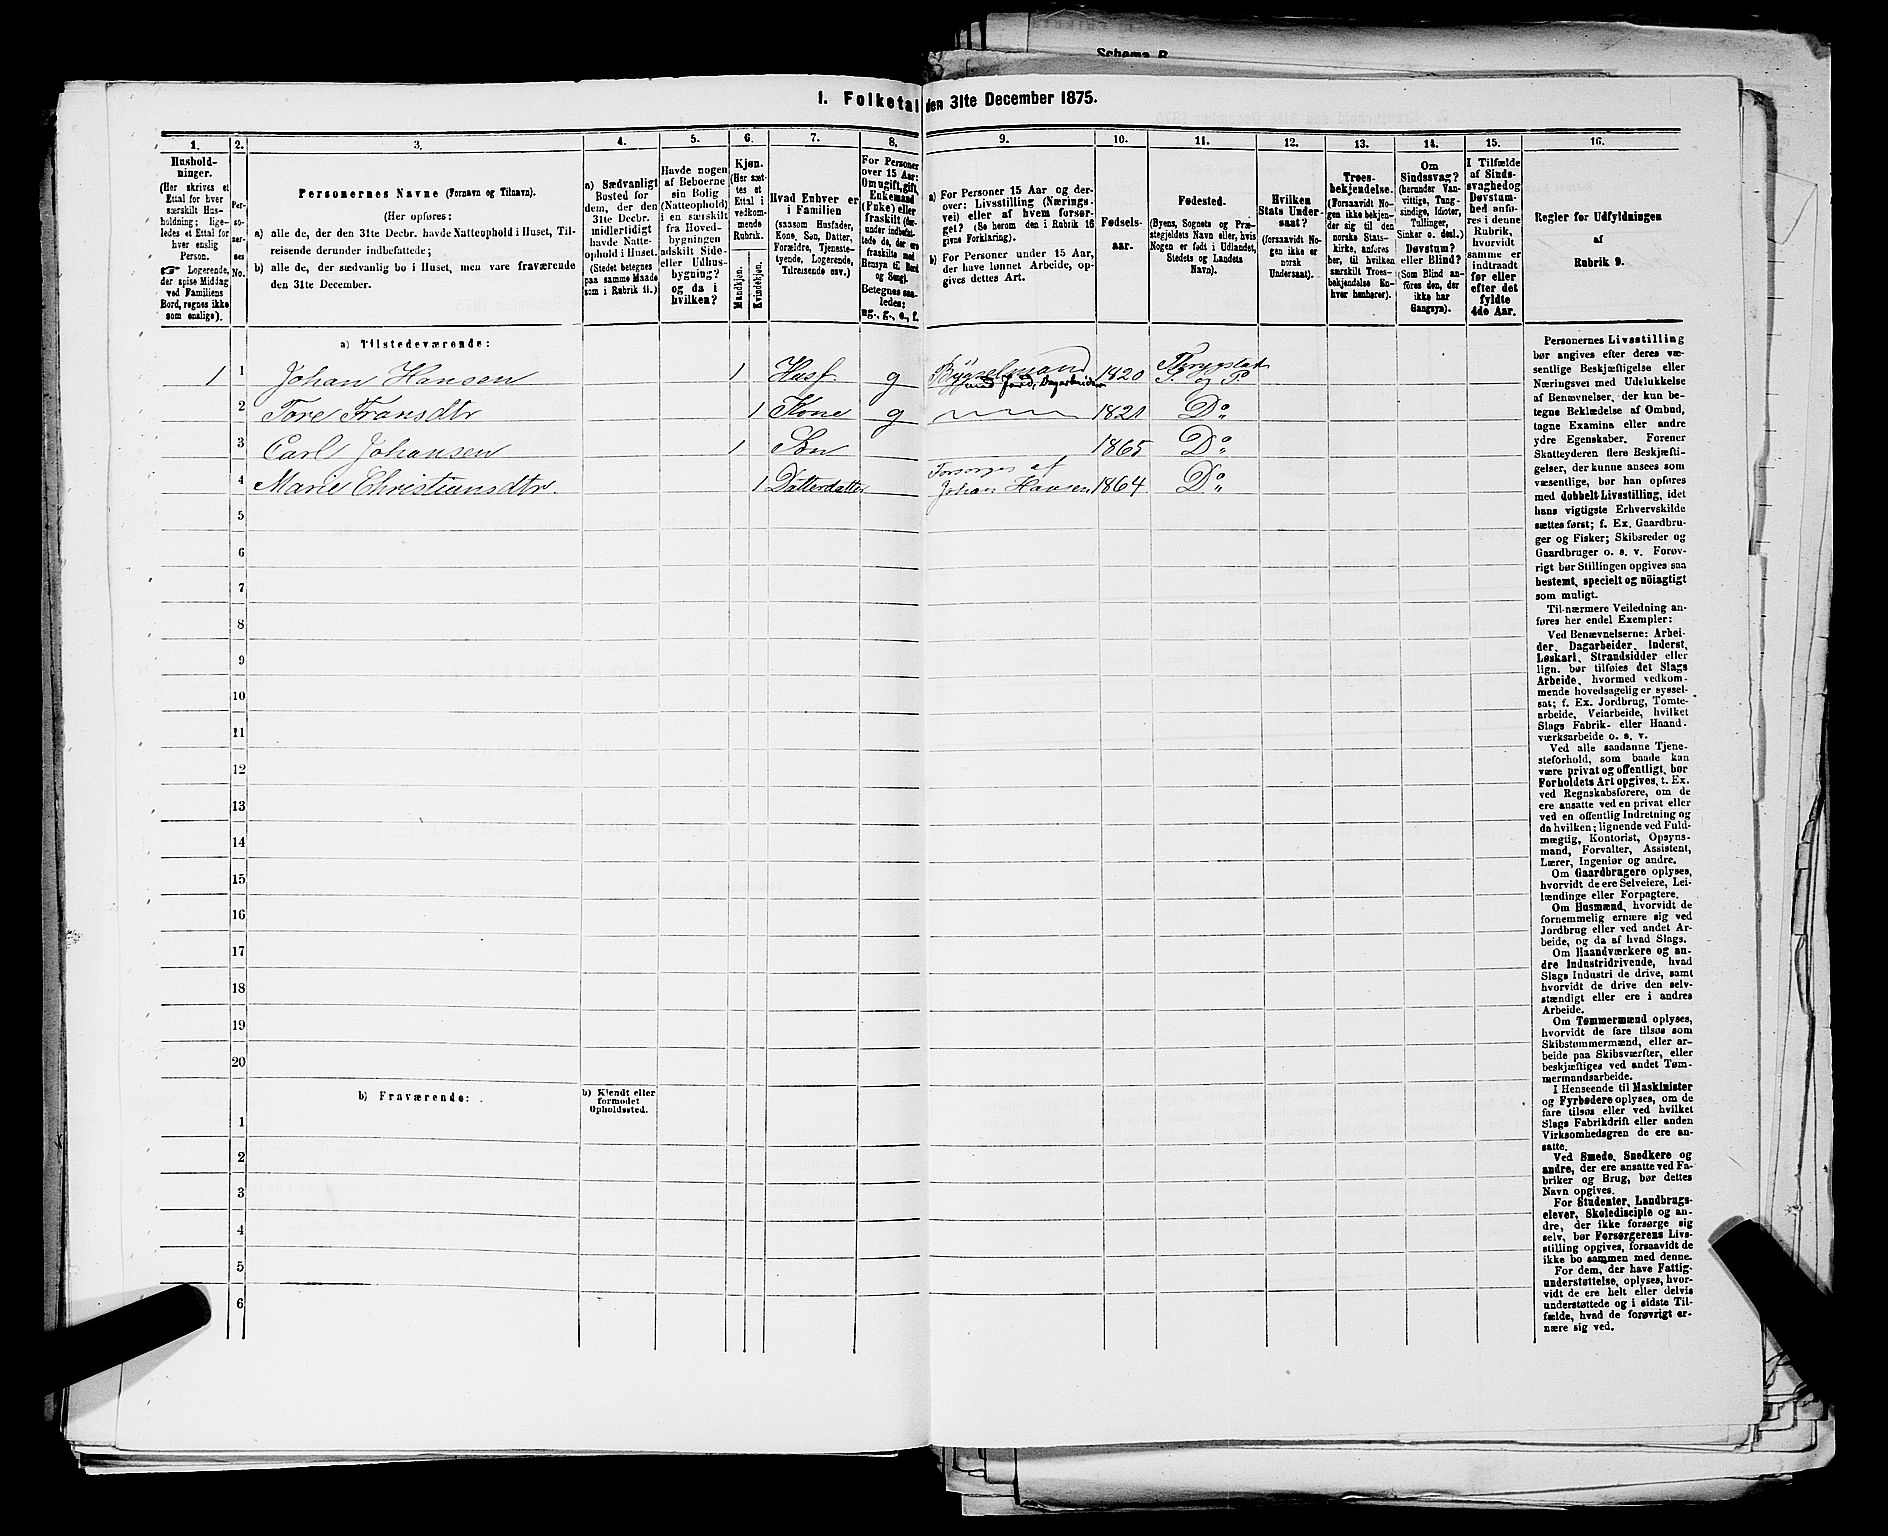 Schema B
1. Folketal den 31te December 1875.
1. 2. 3. 4. 5. 6. 7. 8. 9. 10. 11. 12. 13. 14. 15. 16.
Husholdninger.
(Her skrives et
Ettal for hver
særskilt Husholdning; ligeledes et Ettal for
hver enslig
Person.
☞ Logerende,
der spise Middag
ved Familiens
Bord, regnes ikke
som enslige).
Personernes No.
Personernes Navne (Fornavn og Tilnavn).
(Her opføres:
a) alle de, der den 31te Decbr. havde Natteophold i Huset, Tilreisende derunder indbefattede;
b) alle de, der sædvanlig bo i Huset, men vare fraværende
den 31te December.
a) Sædvanligt
Bosted for
dem, der den
31te Decbr.
midlertidigt
havde Natteophold i Huset.
(Stedet betegnes
paa samme Maade
som i Rubrik 11.)
Havde nogen
af Beboerne
sin Bolig
(Natteophold)
i en særskilt
fra Hovedbygningen
adskilt Side- eller Udhusbygning?
og da i
hvilken?
Kjøn.
(Her sættes et
Ettal i
vedkommende
Rubrik.
Mandkjøn.
Kvindekjøn.
Hvad Enhver er
i Familien
(saasom Husfader,
Kone, Søn, Datter,
Forældre, Tjenestetyende, Logerende,
Tilreisende osv.)
For Personer
over 15 Aar:
Om ugift, gift,
Enkemand
(Enke) eller
fraskilt (herunder indbefattede de, der ere
fraskilte med
Hensyn til Bord
og Seng).
Betegnes saaledes:
ug., g., e., f.
a) For Personer 15 Aar og derover: Livsstilling (Næringsvei) eller af hvem forsørget? (Se herom den i Rubrik 16
givne Forklaring).
b) For Personer under 15 Aar,
der have lønnet Arbeide, opgives dettes Art.
Fødselsaar.
Fødested.
(Byens, Sognets og Præstegjeldets Navn eller, hvis
Nogen er født i Udlandet,
Stedets og Landets
Navn).
Hvilken
Stats Undersaat?
(forsaavidt Nogen ikke er
norsk
Undersaat).
Troesbekjendelse.
(Forsaavidt Nogen ikke bekjender sig til den
norske Statskirke, anføres
her, til hvilken
særskilt Troesbekjendelse Enhver henhører).
Om
Sindssvag?
(herunder Vanvittige, Tungsindige, Idioter,
Tullinger,
Sinker o. desl.)
Døvstum?
eller Blind?
(Som Blind anføres den, der
ikke har
Gangsyn).
I Tilfælde
af Sindssvaghed og
Døvstumhed anføres
i denne
Rubrik,
hvorvidt
samme er
indtraadt
før eller
efter det
fyldte
4de Aar.
Regler for Udfyldningen
af
Rubrik 9.
a) Tilstedeværende:
1 1 Johan Hansen 1 Husf. g Bygselmand med Jord, Dagarbeider 1820 Thrygstad S. og P.
2 Tore Fransdtr 1 Kone g 1821 Do
3 Carl Johansen 1 Søn 1865 Do
4 Marie Christiansdtr. 1 Datterdatter Forsørges af Johan Hansen 1864 Do
5
6
7
8
9
10
11
12
13
14
15
16
17
18
19
20
b) Fraværende:
b) Kjendt eller
formodet
Opholdssted.
1
2
3
4
5
6
Personernes Livsstilling
bør angives efter deres væsentlige Beskjæftigelse eller
Næringsvei med Udelukkelse
af Benævnelser, der kun betegne Beklædelse af Ombud,
tagne Examina eller andre
ydre Egenskaber. Forener
Skatteyderen flere Beskjæftigelser, der kunne ansees som
væsentlige, bør han opføres
med dobbelt Livsstilling, idet
hans vigtigste Erhvervskilde
sættes først; f. Ex. Gaardbruger og Fisker; Skibsreder og
Gaardbruger o. s. v. Forøvrigt bør Stillingen opgives saa
bestemt, specielt og nöiagtigt
som muligt.
Til nærmere Veiledning anføres her endel Exempler:
Ved Benævnelserne: Arbeider, Dagarbeider, Inderst,
Løskarl, Strandsidder eller
lign. bør tilføies det Slags
Arbeide, hvormed vedkommende hovedsagelig er sysselsat; f. Ex. Jordbrug, Tomtearbeide, Veiarbeide, hvilket
Slags Fabrik- eller Haandværksarbeide o. s. v.
Ved alle saadanne Tjenesteforhold, som baade kan
være privat og offentligt, bør
Forholdets Art opgives, t. Ex.
ved Regnskabsførere, om de
ere ansatte ved en privat eller
ved en offentlig Indretning og
da hvilken; lignende ved Fuldmægtig, Kontorist, Opsynsmand, Forvalter, Assistent,
Lærer, Ingeniør og andre.
Om Gaardbrugere oplyses,
hvorvidt de ere Selveiere, Leilændinge eller Forpagtere.
Om Husmænd, hvorvidt de
fornemmelig ernære sig ved
Jordbrug eller ved andet Arbeide, og da af hvad Slags.
Om Haandværkere og andre Industridrivende, hvad
Slags Industri de drive, samt
hvorvidt de drive den selvstændigt eller ere i andres
Arbeide.
Om Tømmermænd oplyses,
hvorvidt de fare tilsøs som
Skibstømmermænd, eller arbeide paa Skibsværfter, eller
beskjæftiges ved andet Tømmermandsarbeide.
I Henseende til Maskinister
og Fyrbødere oplyses, om de
fare tilsøs eller ved hvilket
Slags Fabrikdrift eller anden
Virksomhedsgren de ere ansatte.
Ved Smede, Snedkere og
andre, der ere ansatte ved Fabriker og Brug, bør dettes
Navn opgives.
For Studenter, Landbrugselever, Skoledisciple og andre, der ikke forsørge sig
selv, bør Forsørgerens Livsstilling opgives, forsaavidt de
ikke bo sammen med denne.
For dem, der have Fattigunderstøttelse, oplyses, hvorvidt de ere helt eller delvis
understøttede og i sidste Tilfælde, hvad de forøvrigt ernære sig ved.